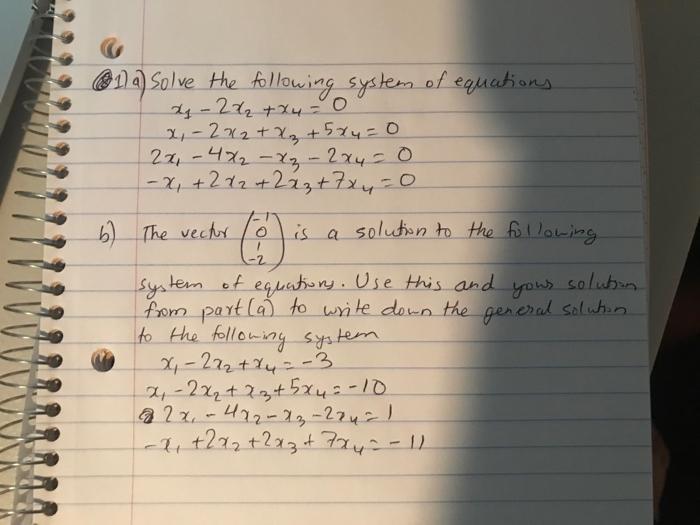 1) a) Solve the following system of equations
x₁ - 2x₂ + x₄ = 0
x₁ - 2x₂ + x₃ + 5x₄ = 0
2x₁ - 4x₂ - x₃ - 2x₄ = 0
-x₁ + 2x₂ + 2x₃ + 7x₄ = 0
b) The vector (-1 0 1 -2) is a solution to the following
system of equations. Use this and your solution
from part (a) to write down the general solution
to the following system
x₁ - 2x₂ + x₄ = -3
x₁ - 2x₂ + x₃ + 5x₄ = -10
2x₁ - 4x₂ - x₃ - 2x₄ = 1
-x₁ + 2x₂ + 2x₃ + 7x₄ = -11